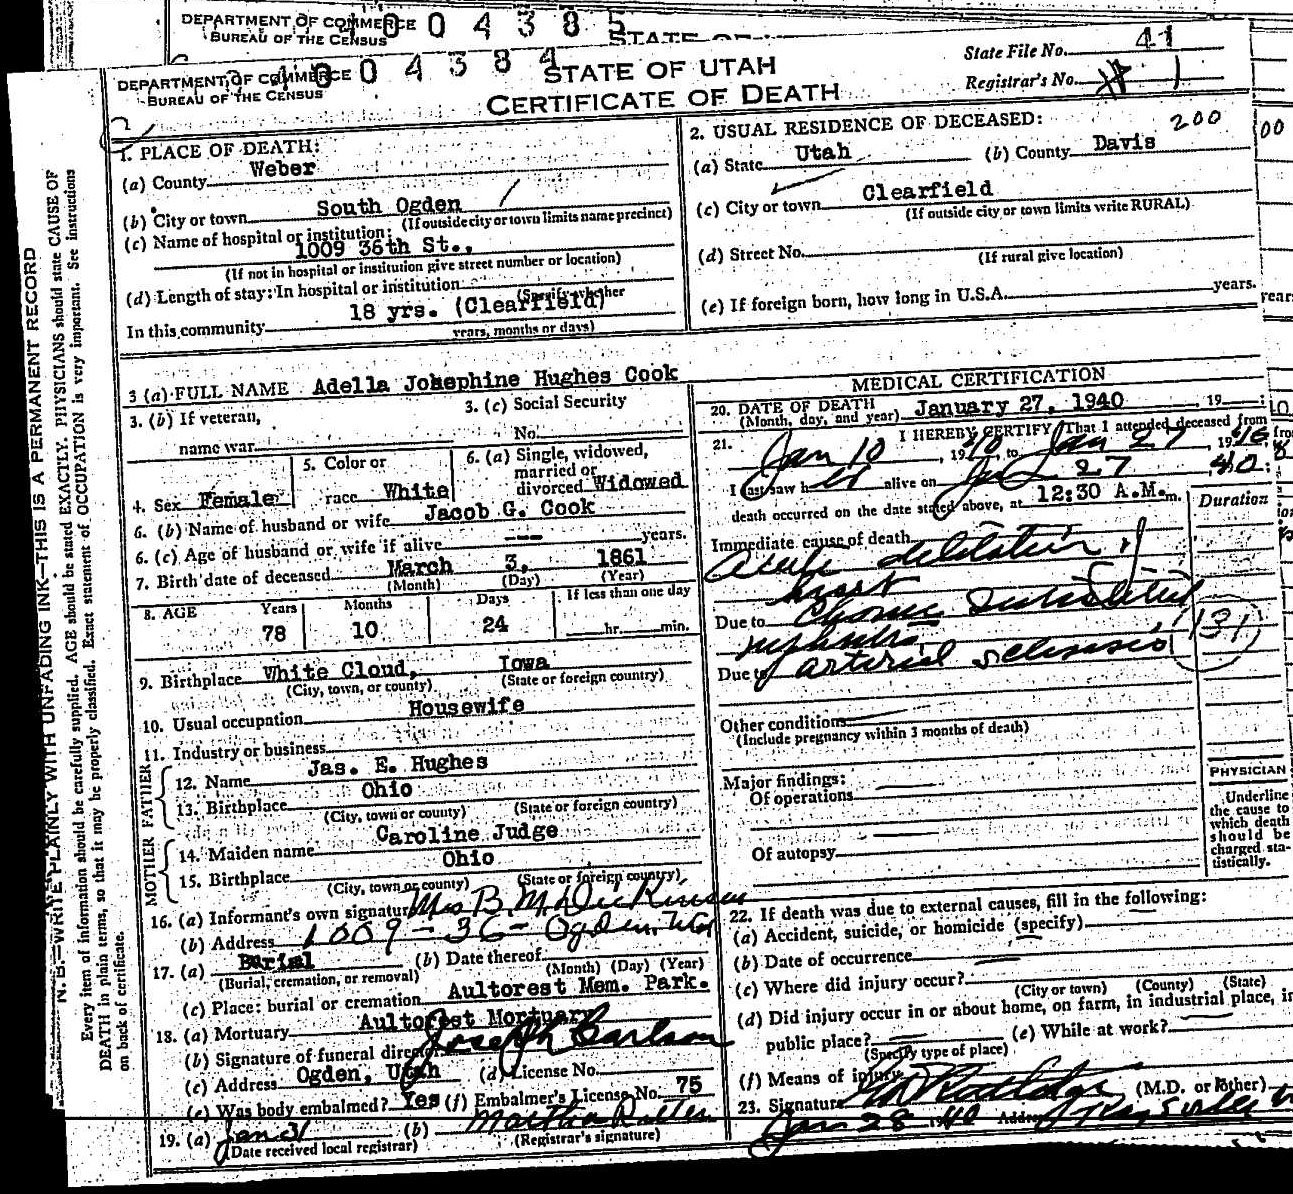 DEPARTMENT OF COMMERCE
BUREAU OF THE CENSUS
4 0 0 4 3 8 5
STATE OF
DEPARTMENT OF COMMERCE
BUREAU OF THE CENSUS
4 0 0 4 3 8 4
STATE OF UTAH
CERTIFICATE OF DEATH
State File No. 41
Registrar's No. 1
1. PLACE OF DEATH:
(a) County Weber
(b) City or town South Ogden
(If outside city or town limits name precinct)
(c) Name of hospital or institution:
1009 36th St.,
(If not in hospital or institution give street number or location)
(d) Length of stay: In hospital or institution
(Specify whether
In this community 18 yrs. (Clearfield)
years, months or days)
2. USUAL RESIDENCE OF DECEASED: 200
(a) State Utah (b) County Davis
(c) City or town Clearfield
(If outside city or town limits write RURAL)
(d) Street No.
(If rural give location)
(e) If foreign born, how long in U.S.A. years.
3 (a) FULL NAME Adella Josephine Hughes Cook
3. (b) If veteran,
name war
3. (c) Social Security
No.
4. Sex Female
5. Color or
race White
6. (a) Single, widowed,
married or
divorced Widowed
6. (b) Name of husband or wife Jacob G. Cook
6. (c) Age of husband or wife if alive --- years.
7. Birth date of deceased March 3, 1861
(Month) (Day) (Year)
8. AGE Years Months Days If less than one day
78 10 24 hr. min.
9. Birthplace White Cloud, Iowa
(City, town, or county) (State or foreign country)
10. Usual occupation Housewife
11. Industry or business
FATHER
12. Name Jas. E. Hughes
13. Birthplace Ohio
(City, town or county) (State or foreign country)
MOTHER
14. Maiden name Caroline Judge
15. Birthplace Ohio
(City, town or county) (State or foreign country)
16. (a) Informant's own signature Mrs B. M. Dickinson
(b) Address 1009 - 36 - Ogden, Utah
17. (a) Burial (b) Date thereof
(Burial, cremation, or removal) (Month) (Day) (Year)
(c) Place: burial or cremation Aultorest Mem. Park.
18. (a) Mortuary Aultorest Mortuary
(b) Signature of funeral director Joseph Carlson
(c) Address Ogden, Utah (d) License No.
(e) Was body embalmed? Yes (f) Embalmer's License No. 75
19. (a) Jan 31 (b) Martha
(Date received local registrar) (Registrar's signature)
MEDICAL CERTIFICATION
20. DATE OF DEATH
(Month, day, and year) January 27, 1940 , 19 ;
21. I HEREBY CERTIFY That I attended deceased from
Jan 10, 1940, to Jan 27, 1940,
I last saw her alive on Jan 27 40;
death occurred on the date stated above, at 12:30 A.M. m.
Duration
Immediate cause of death
acute dilatation of
heart
Due to Chronic interstitial
nephritis 131
Due to arterial sclerosis
Other conditions
(Include pregnancy within 3 months of death)
Major findings:
Of operations
Of autopsy
PHYSICIAN
Underline
the cause to
which death
should be
charged sta-
tistically.
22. If death was due to external causes, fill in the following:
(a) Accident, suicide, or homicide (specify)
(b) Date of occurrence
(c) Where did injury occur?
(City or town) (County) (State)
(d) Did injury occur in or about home, on farm, in industrial place, in
public place? (e) While at work?
(Specify type of place)
(f) Means of injury
23. Signature (M.D. or other)
Jan 28 1940 Address
N. B.—WRITE PLAINLY WITH UNFADING INK—THIS IS A PERMANENT RECORD
Every item of information should be carefully supplied. AGE should be stated EXACTLY. PHYSICIANS should state CAUSE OF
DEATH in plain terms, so that it may be properly classified. Exact statement of OCCUPATION is very important. See instructions
on back of certificate.